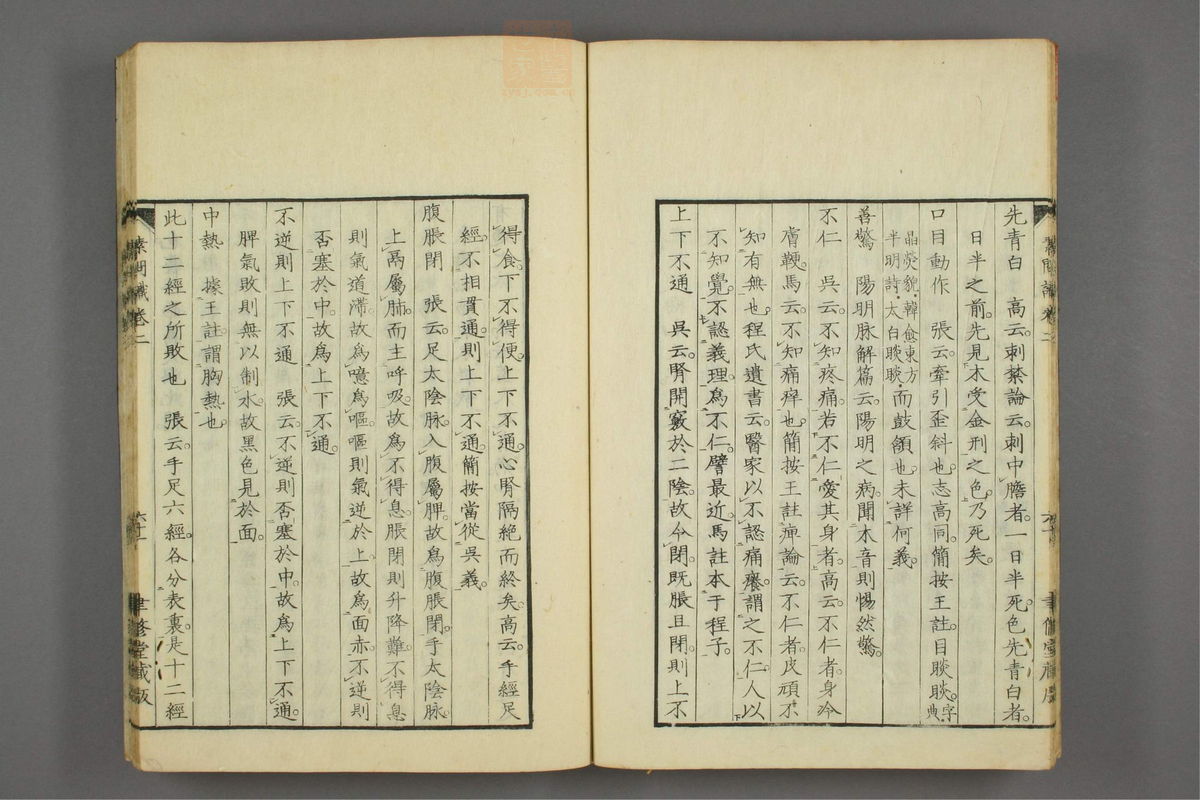 先青白　高云。刺禁論云。刺中膽者。一日半死。色先青白者。
日半之前。先見木受金刑之色。乃死矣。
口目動作　張云。牽引歪斜也。志高同。簡按王註。目睒睒。字典
晶熒貌。韓愈東方
半明詩。太白睒睒。而鼓頷也。未詳何義。
善驚　陽明脉解篇云。陽明之病。聞木音則惕然驚。
不仁　吳云。不知疼痛。若不仁愛其身者。高云。不仁者。身冷
膚鞕。馬云。不知痛痺也。簡按王註痺論云。不仁者。皮頑不
知有無也。程氏遺書云。醫家以不認痛癢謂之不仁。人以
不知覺。不認義理。爲不仁。譬最近。馬註本于程子。
上下不通　吳云。腎開竅於二陰。故令閉。既脹且閉。則上不
得食。下不得便。上下不通。心腎隔絕而終矣。高云。手經足
經。不相貫通。則上下不通。簡按當從吳義。
腹脹閉　張云。足太陰脉。入腹屬脾。故爲腹脹閉。手太陰脉。
上鬲屬肺。而主呼吸。故爲不得息。脹閉則升降難。不得息
則氣道滯。故爲噫爲嘔。嘔則氣逆於上。故爲面赤。不逆則
否塞於中。故爲上下不通。
不逆則上下不通　張云。不逆則否塞於中。故爲上下不通。
脾氣敗則無以制水。故黑色見於面。
中熱　據王註。謂胸熱也。
此十二經之所敗也　張云。手足六經。各分表裏。是十二經
素問識卷二
聿修堂藏版